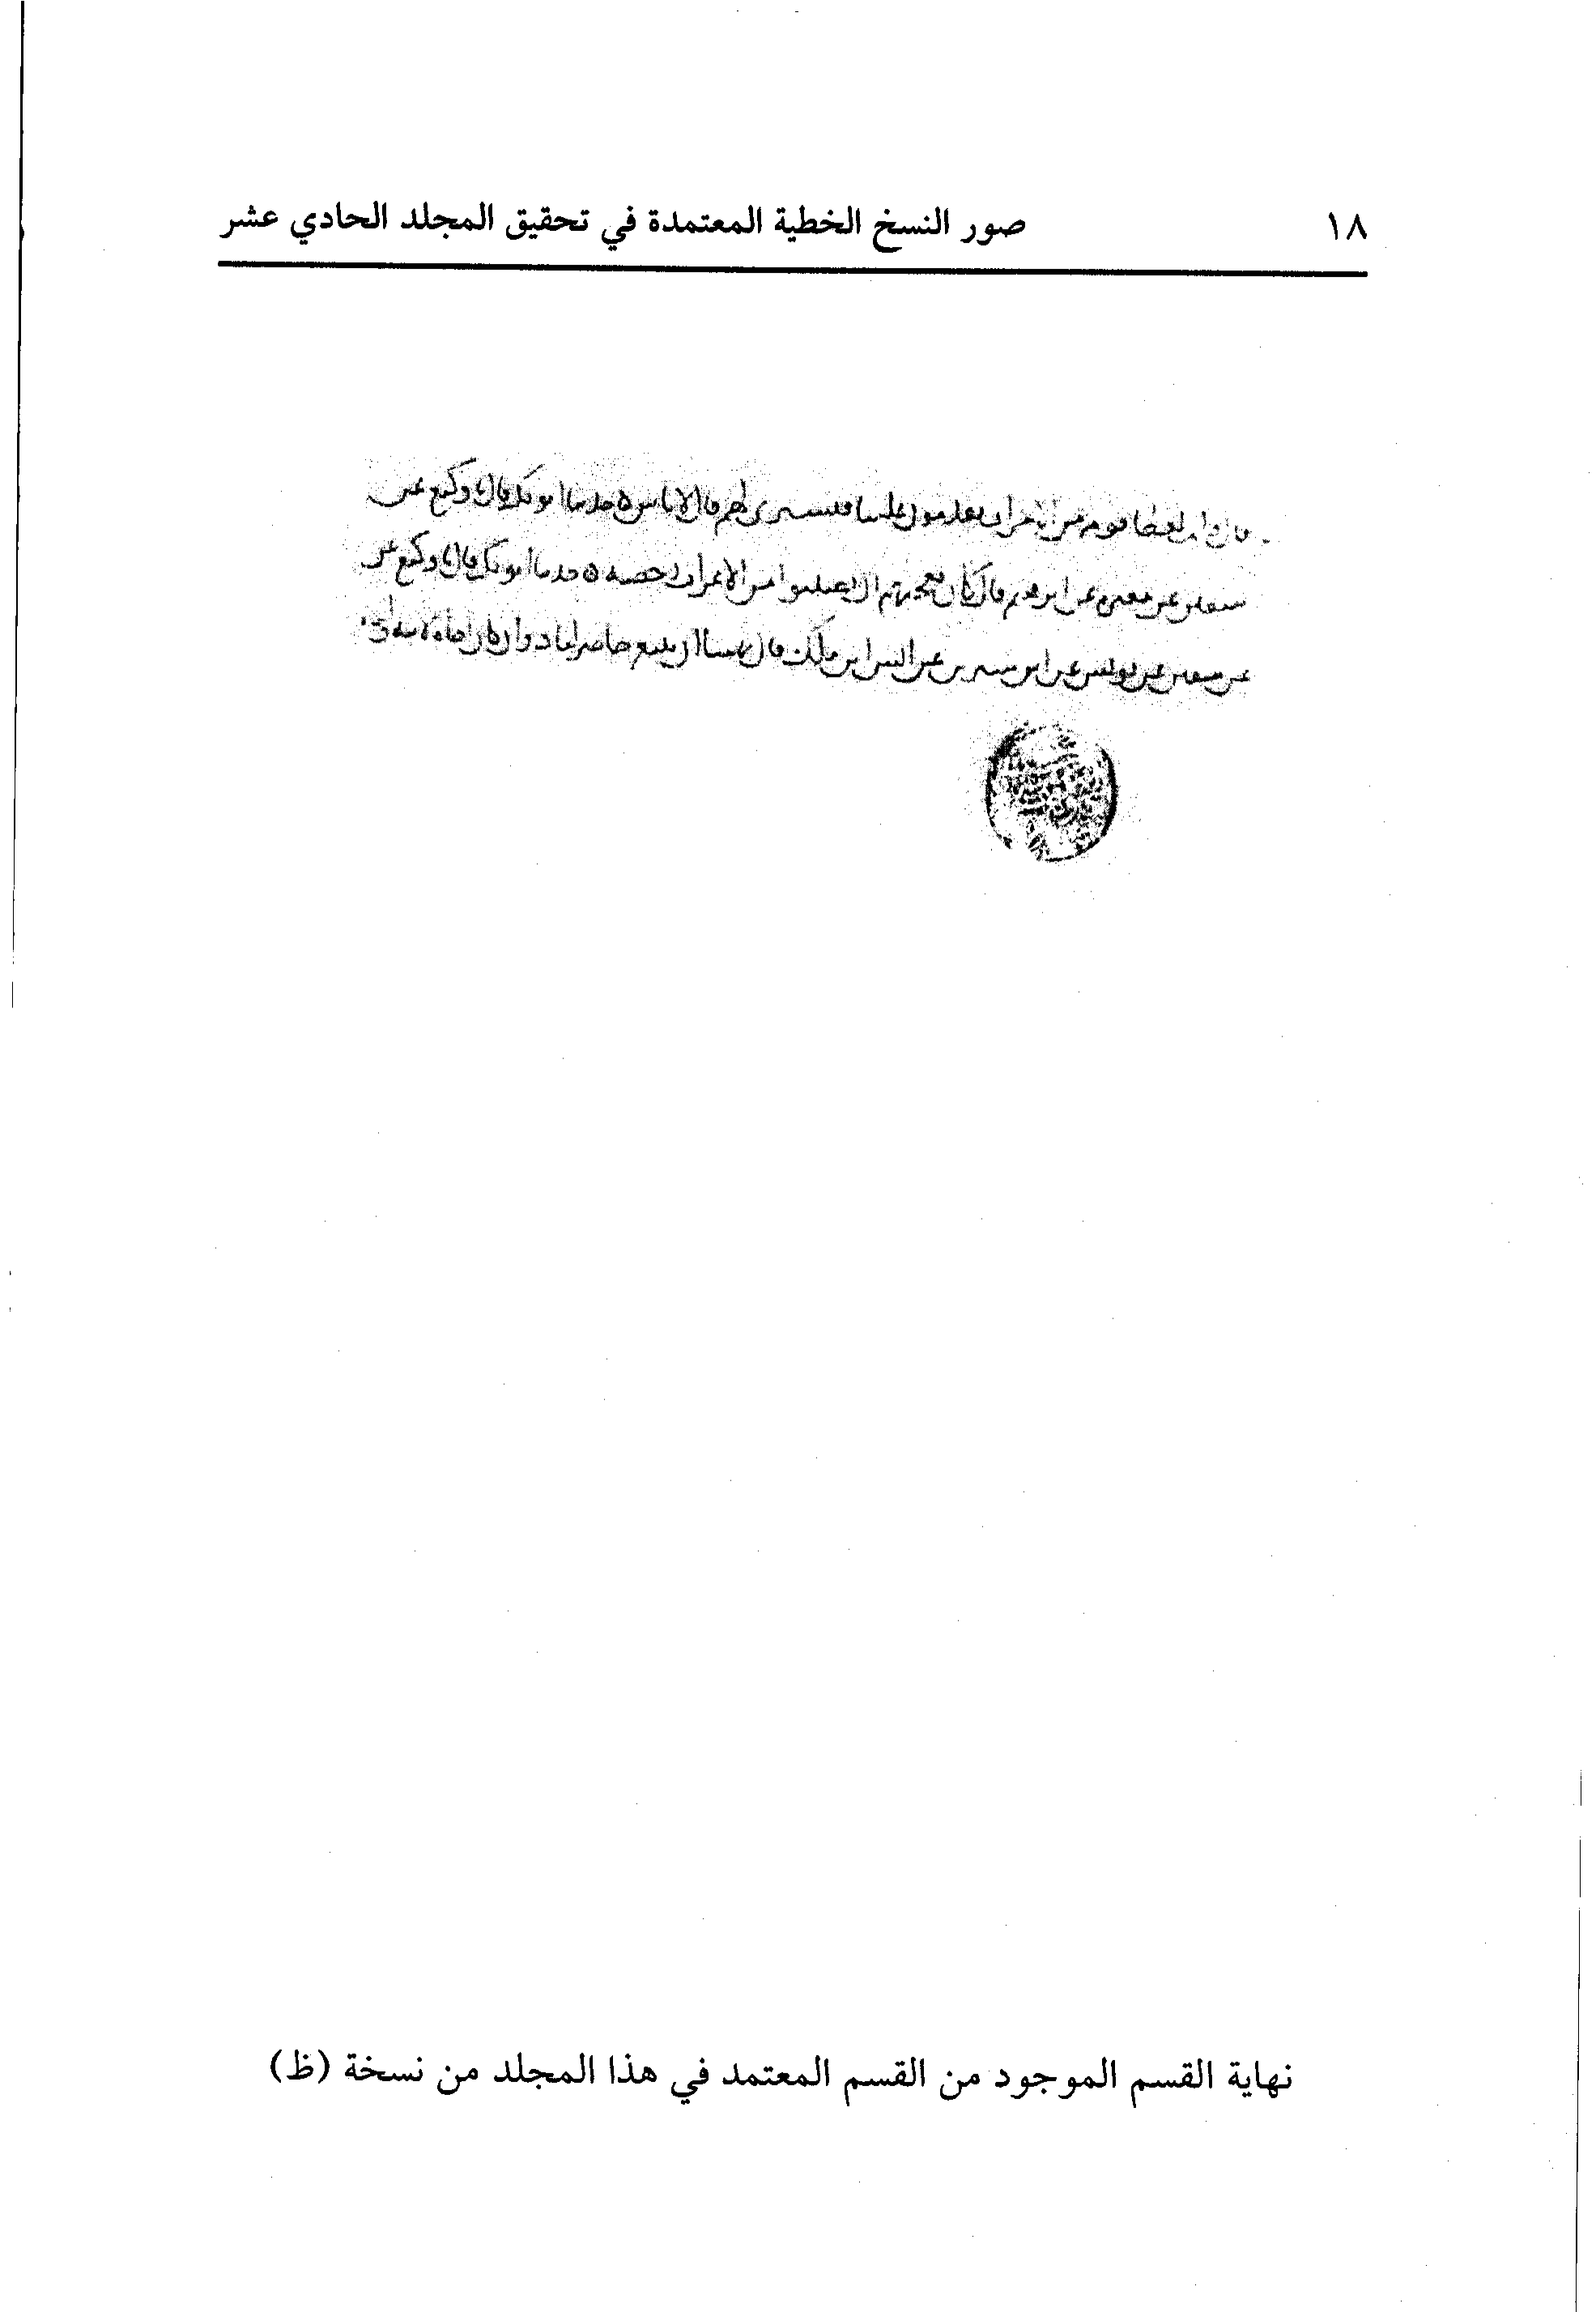 ١٨ صور النسخ الخطية المعتمدة في تحقيق المجلد الحادي عشر
قال لعطا قوم من الاعراب يقدمون علينا فنشتري لهم قال لا باس ه حدثنا ابو بكر قال نا وكيع عن
سفين عن مغيره عن ابرهيم قال كان يعجبهم ان يصيبوا من الاعراب رخصه ه حدثنا ابو بكر قال نا وكيع عن
عن سفين عن يونس عن ابن سيرين عن انس ابن مالك قال نهينا ان يبيع حاضر لباد وان كان اخاه لابيه
نهاية القسم الموجود من القسم المعتمد في هذا المجلد من نسخة (ظ)